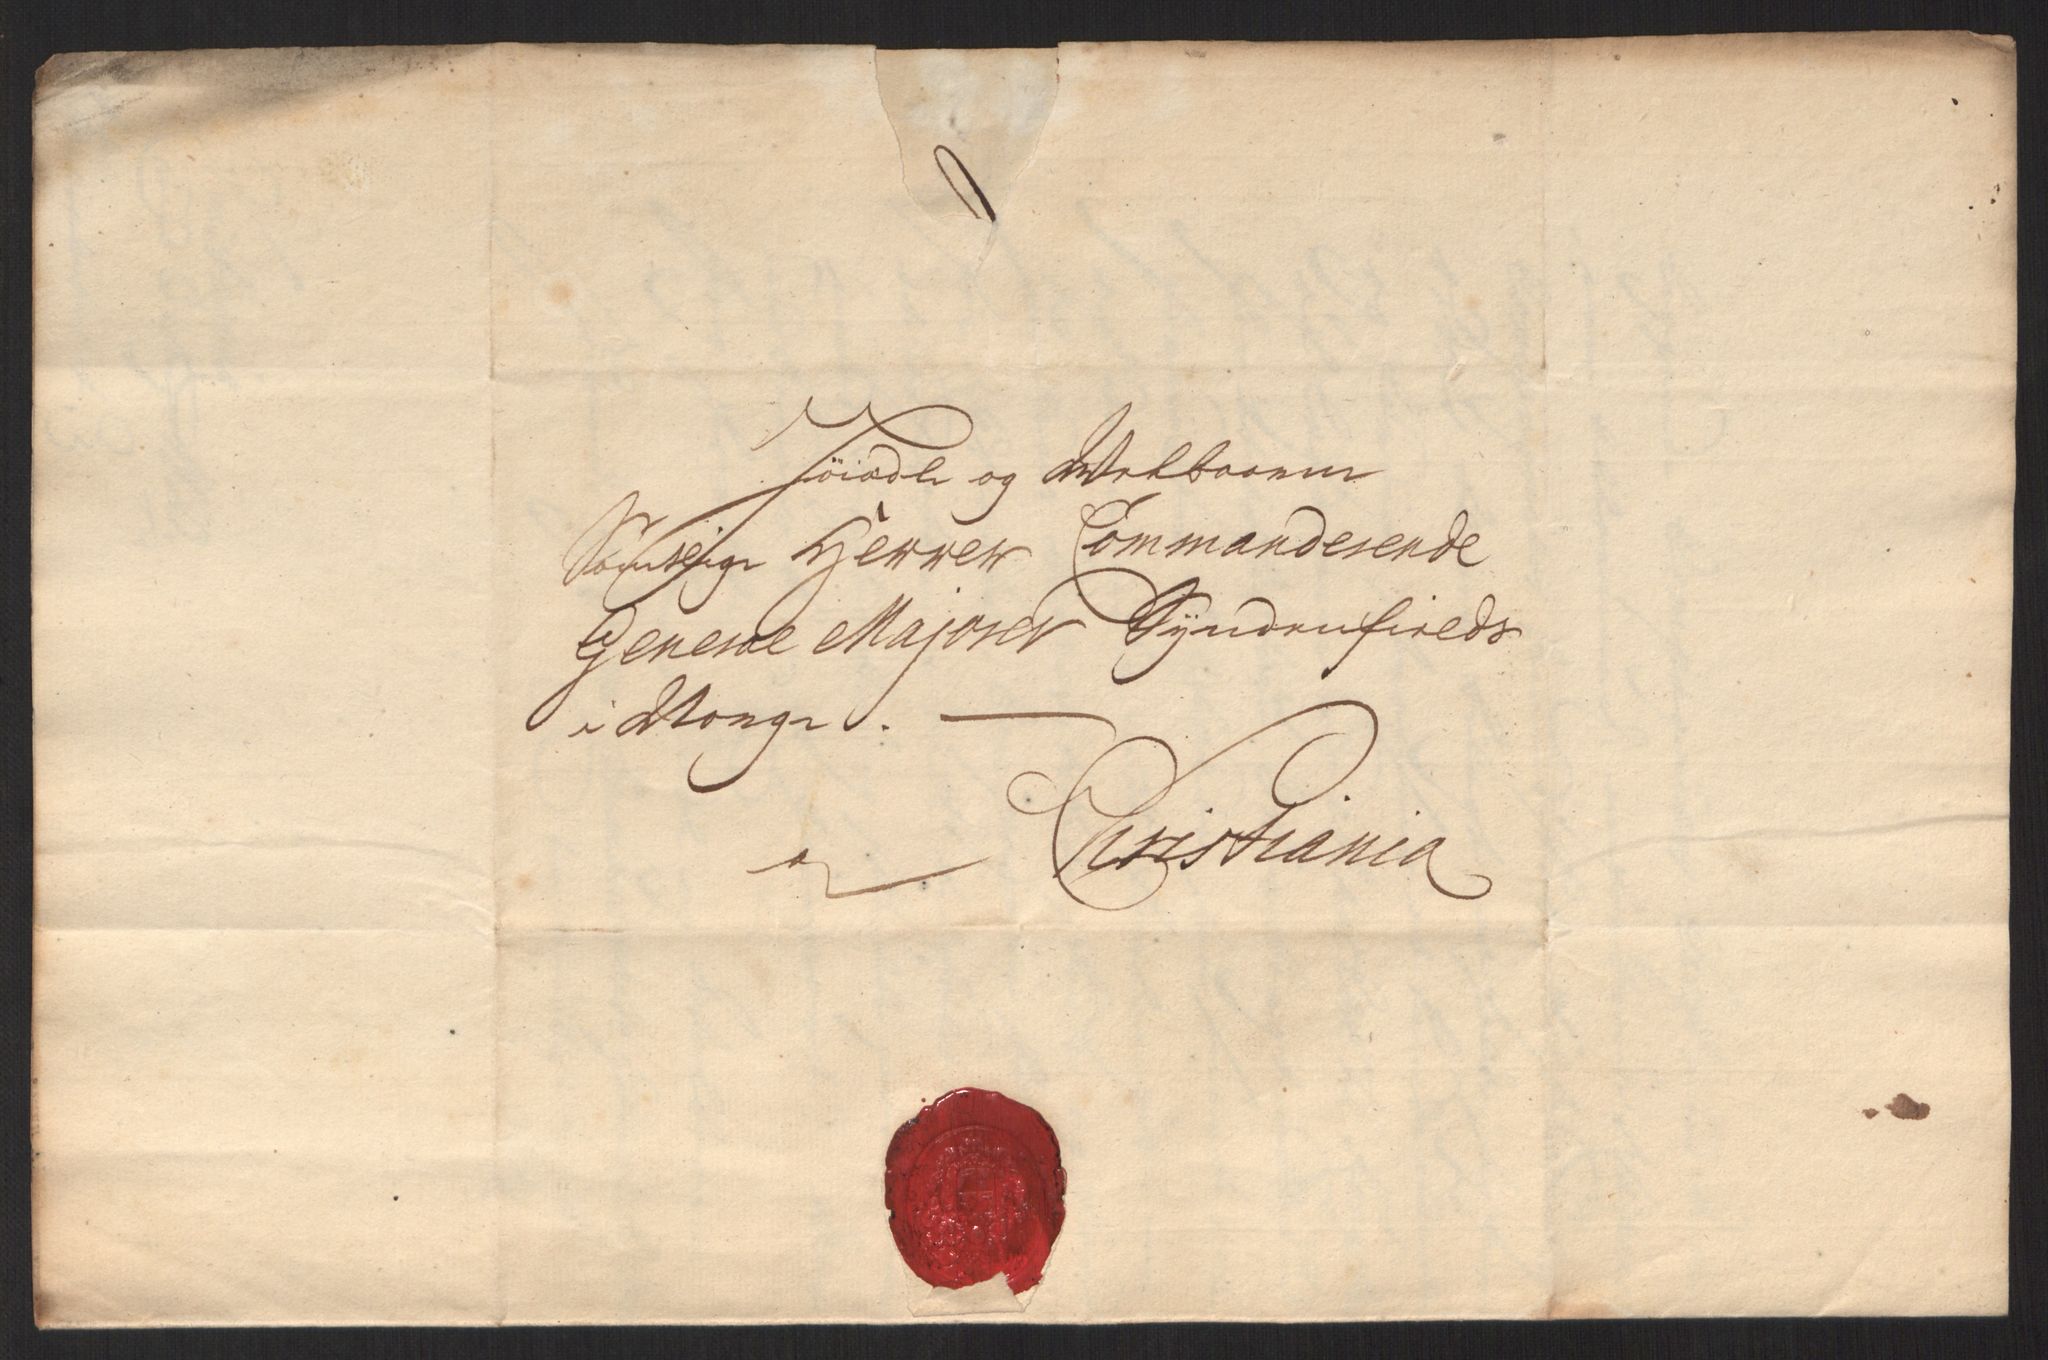 Höiædle og Welbaarne
Samtlige Herrer Commanderende
Generae Majorer Syndenfields
i Norge.
a
Christiania